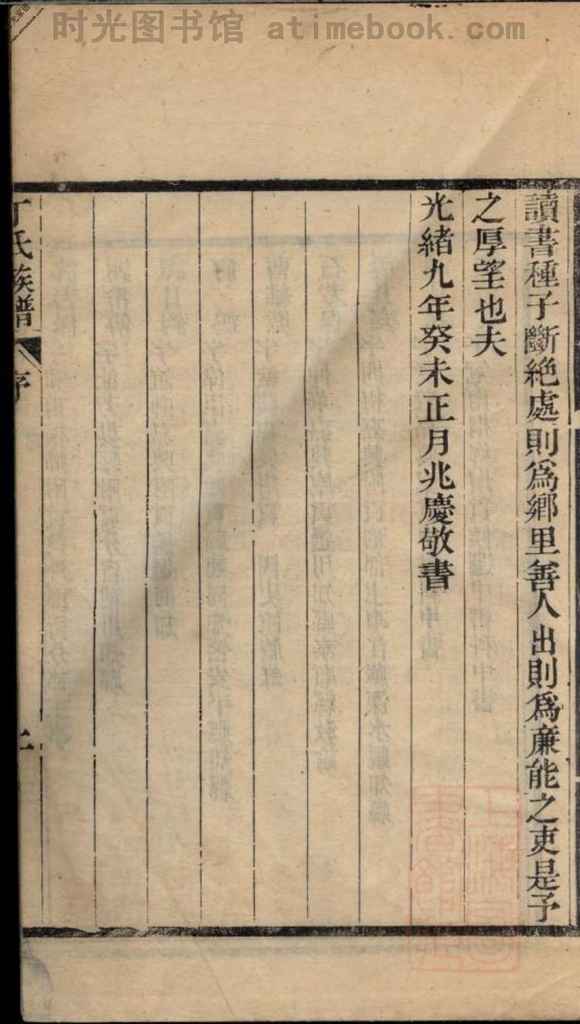 时光图书馆 atimebook.com
讀書種子斷絶處則爲鄉里善人出則爲廉能之吏是予
之厚望也夫
光緒九年癸未正月兆慶敬書
丁氏族譜
序